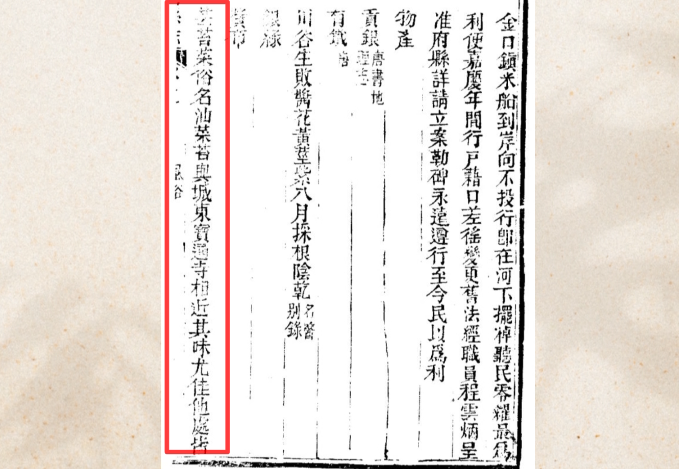 金口鎮米船到岸向不投行卽在河下擺棹聽民零糴最爲
利便嘉慶年間行戶藉口差徭變更舊法經職員程雲炳呈
准府縣詳請立案勒碑永遠遵行至今民以爲利
物產
貢銀唐書地理志
有鐵
川谷生敗醬花黃莖紫八月採根陰乾名醫別錄
苔菜俗名油菜苔與城東寶通寺相近其味尤佳他處皆
風俗